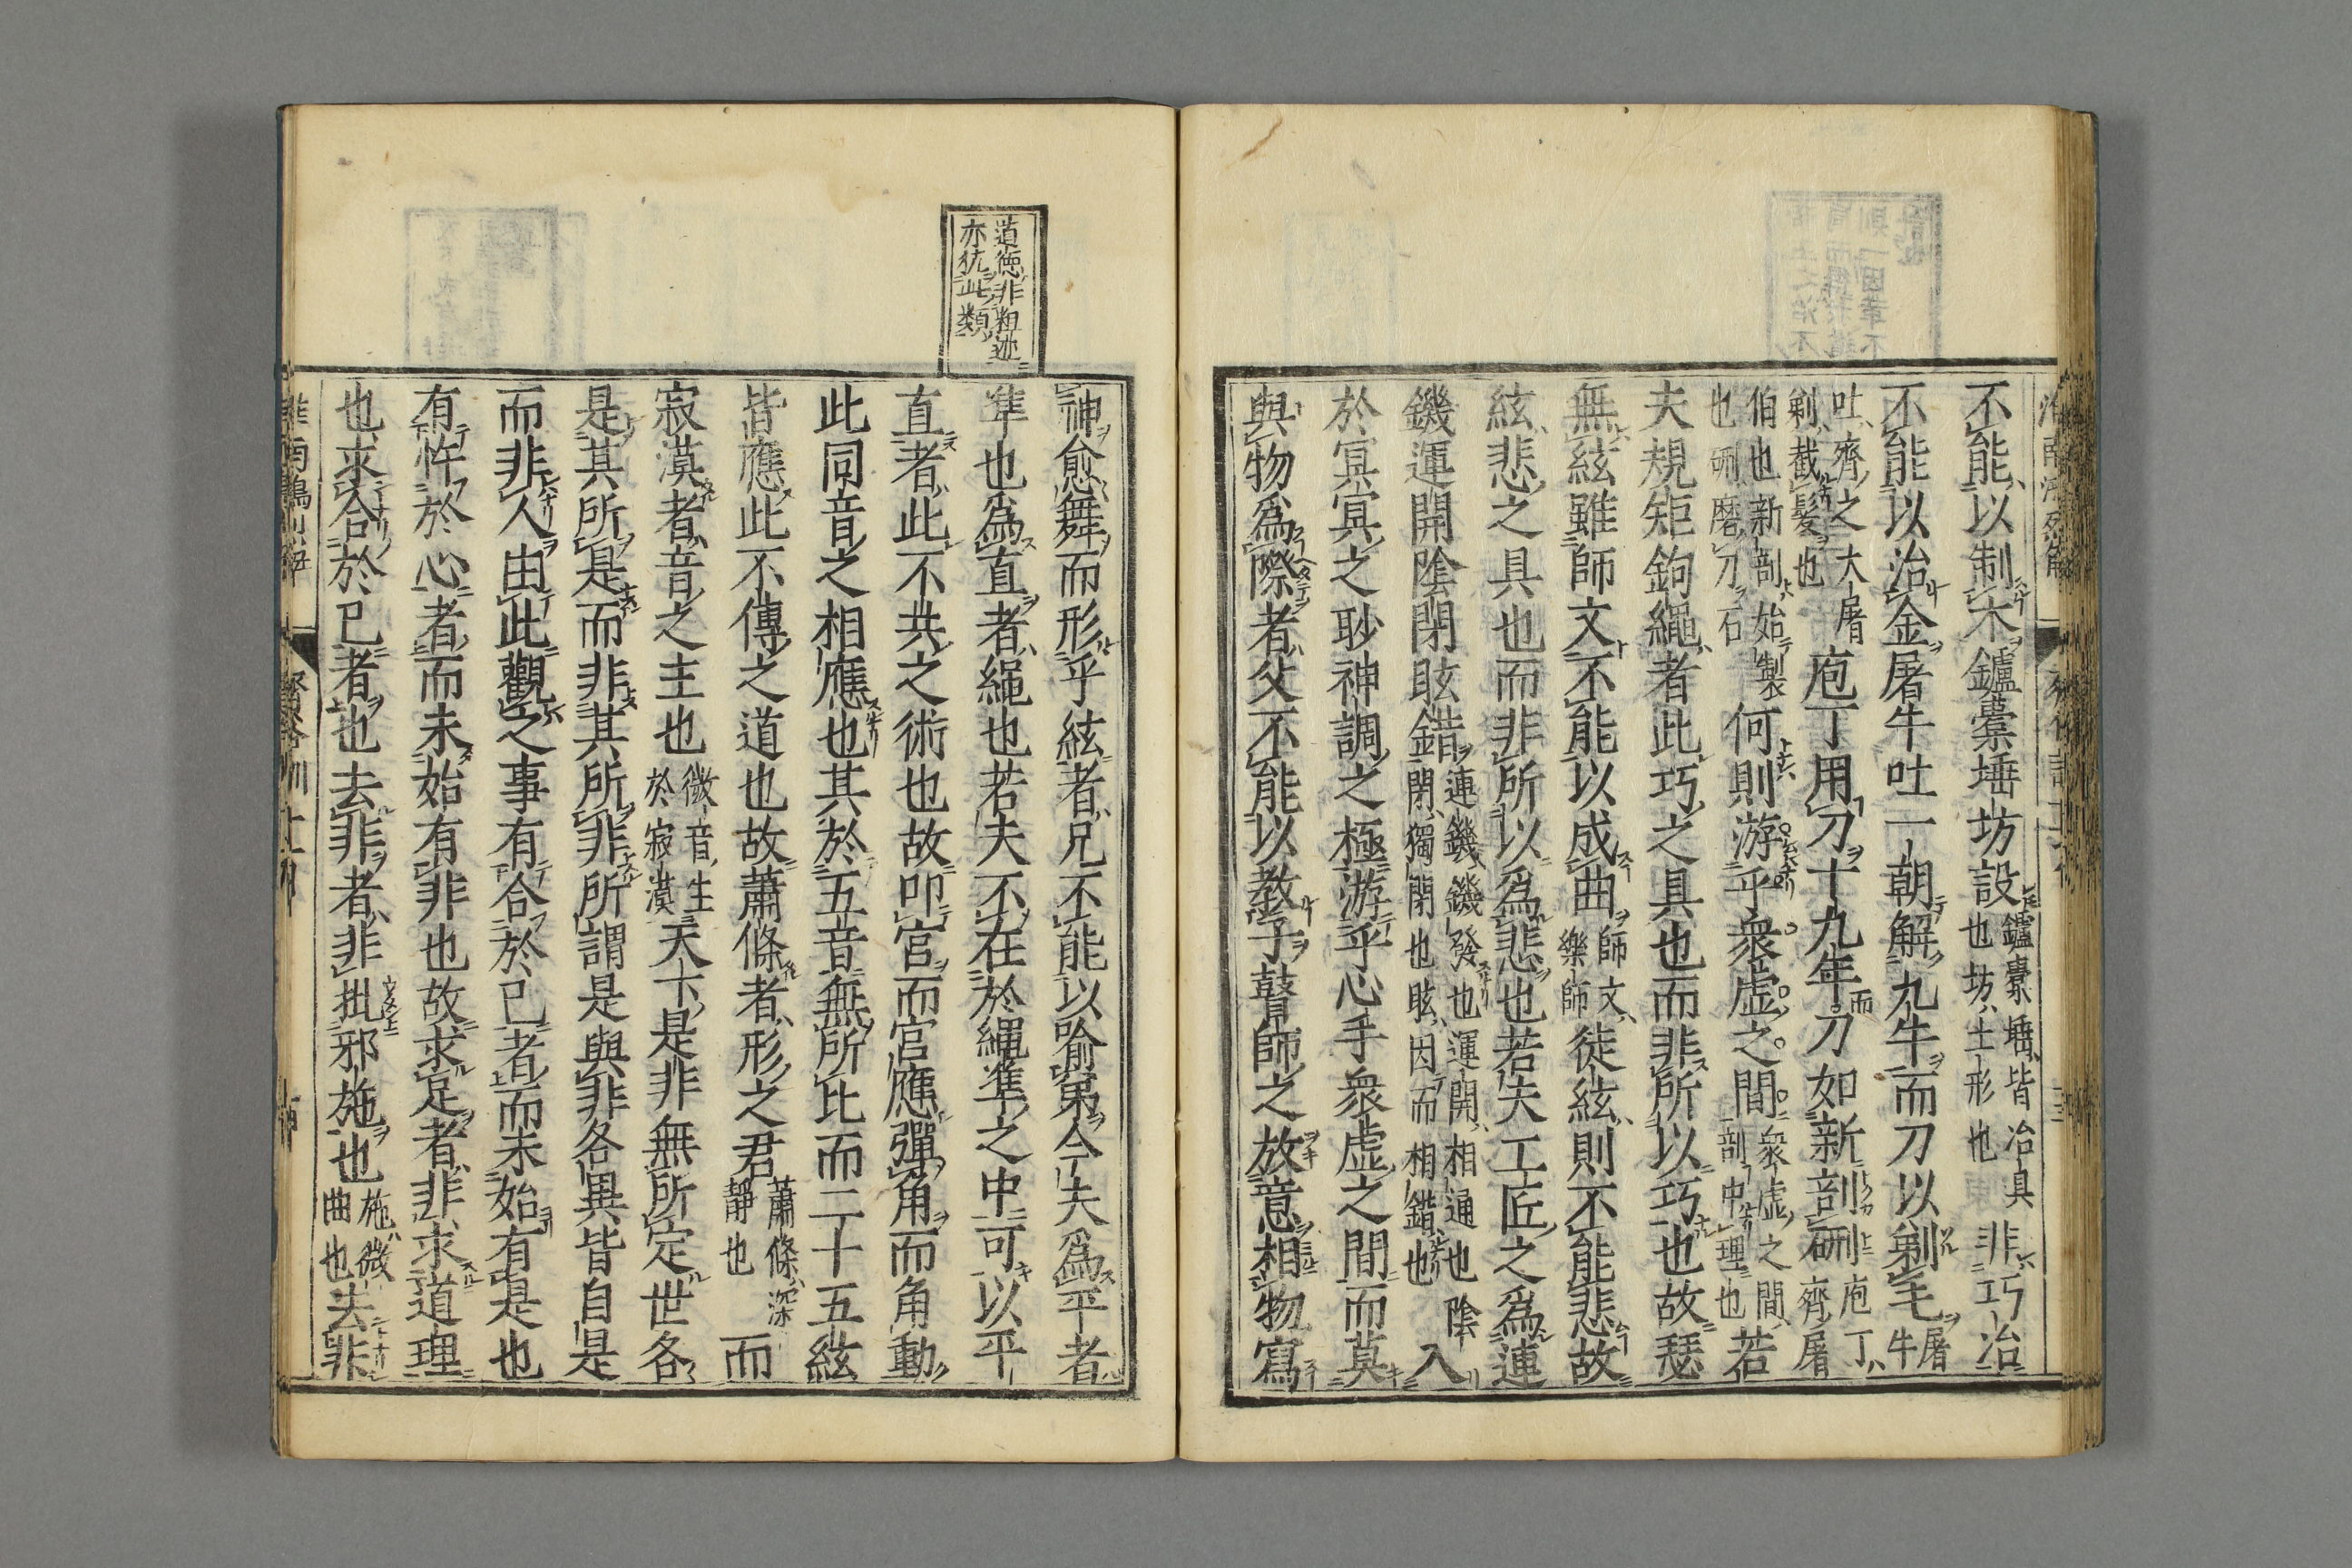 不能以制木鑪橐埵坊設鑪橐埵皆冶具也坊土形也非巧冶
不能以治金屠牛吐一朝解九牛而刀以剃毛屠牛
吐齊之大屠剃截髮也庖丁用刀十九年而刀如新剖硎庖丁齊屠
伯也新剖始製也硎磨刀石何則游乎衆虛之間衆虛之間剖中理也若
夫規矩鉤繩者此巧之具也而非所以巧也故瑟
無絃雖師文不能以成曲師文樂師徒絃則不能悲故
絃悲之具也而非所以爲悲也若夫工匠之爲連
鐖運開陰閉眩錯連鐖鐖發也運開相通也陰閉獨閉也眩因而相錯也入
於冥冥之眇神調之極游乎心手衆虛之間而莫
與物爲際者父不能以教子瞽師之放意相物寫
道德非粗迹
亦犹此類
神愈舞而形乎絃者兄不能以喻弟今夫爲平者
準也爲直者繩也若夫不在於繩準之中可以平
直者此不共之術也故叩宮而宮應彈角而角動
此同音之相應也其於五音無所比而二十五絃
皆應此不傳之道也故蕭條者形之君蕭條深靜也而
寂漠者音之主也微音生於寂漠天下是非無所定世各
是其所是而非其所非所謂是與非各異皆自是
而非人由此觀之事有合於己者而未始有是也
有忤於心者而未始有非也故求是者非求道理
也求合於己者也去非者非批邪施也施微曲也去非